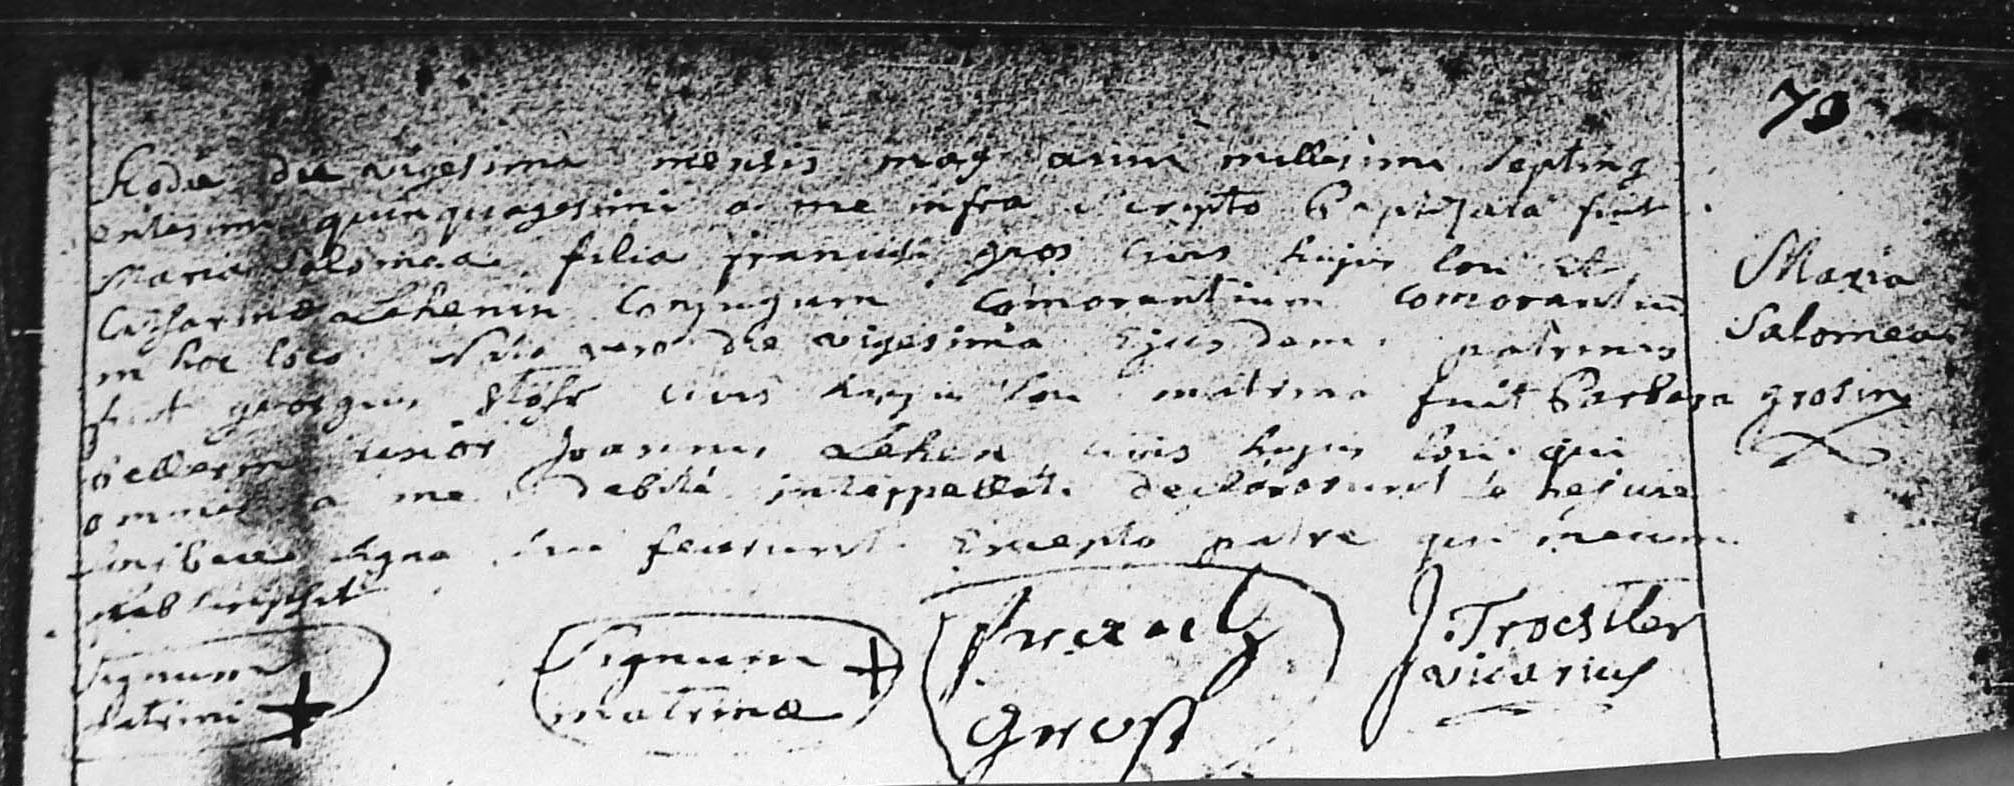 73
Hodie die vigesima mensis maÿ anni millesimi septing
entesimi quinquagesimi a me infra scripto baptizata fuit
Maria Salomea filia francisci gros civis hujus loci et
Catharinæ Lehenin conjugum comorantium comorantium
in hoc loco. Nata vero die vigesima ejusdem. patrinus
fuit georgius civis hujus loci matrina fuit Barbara
uxor Joannis Lehen civis hujus loci. qui
omnes a me debite interppellati declararunt se nescire
scribere signa sua fecerunt Excepto patre qui mecum
subscripsit
Maria
Salomea
grosin
Signum
patrini +
Signum +
matrinæ
Gross
J. Troestler
vicarius